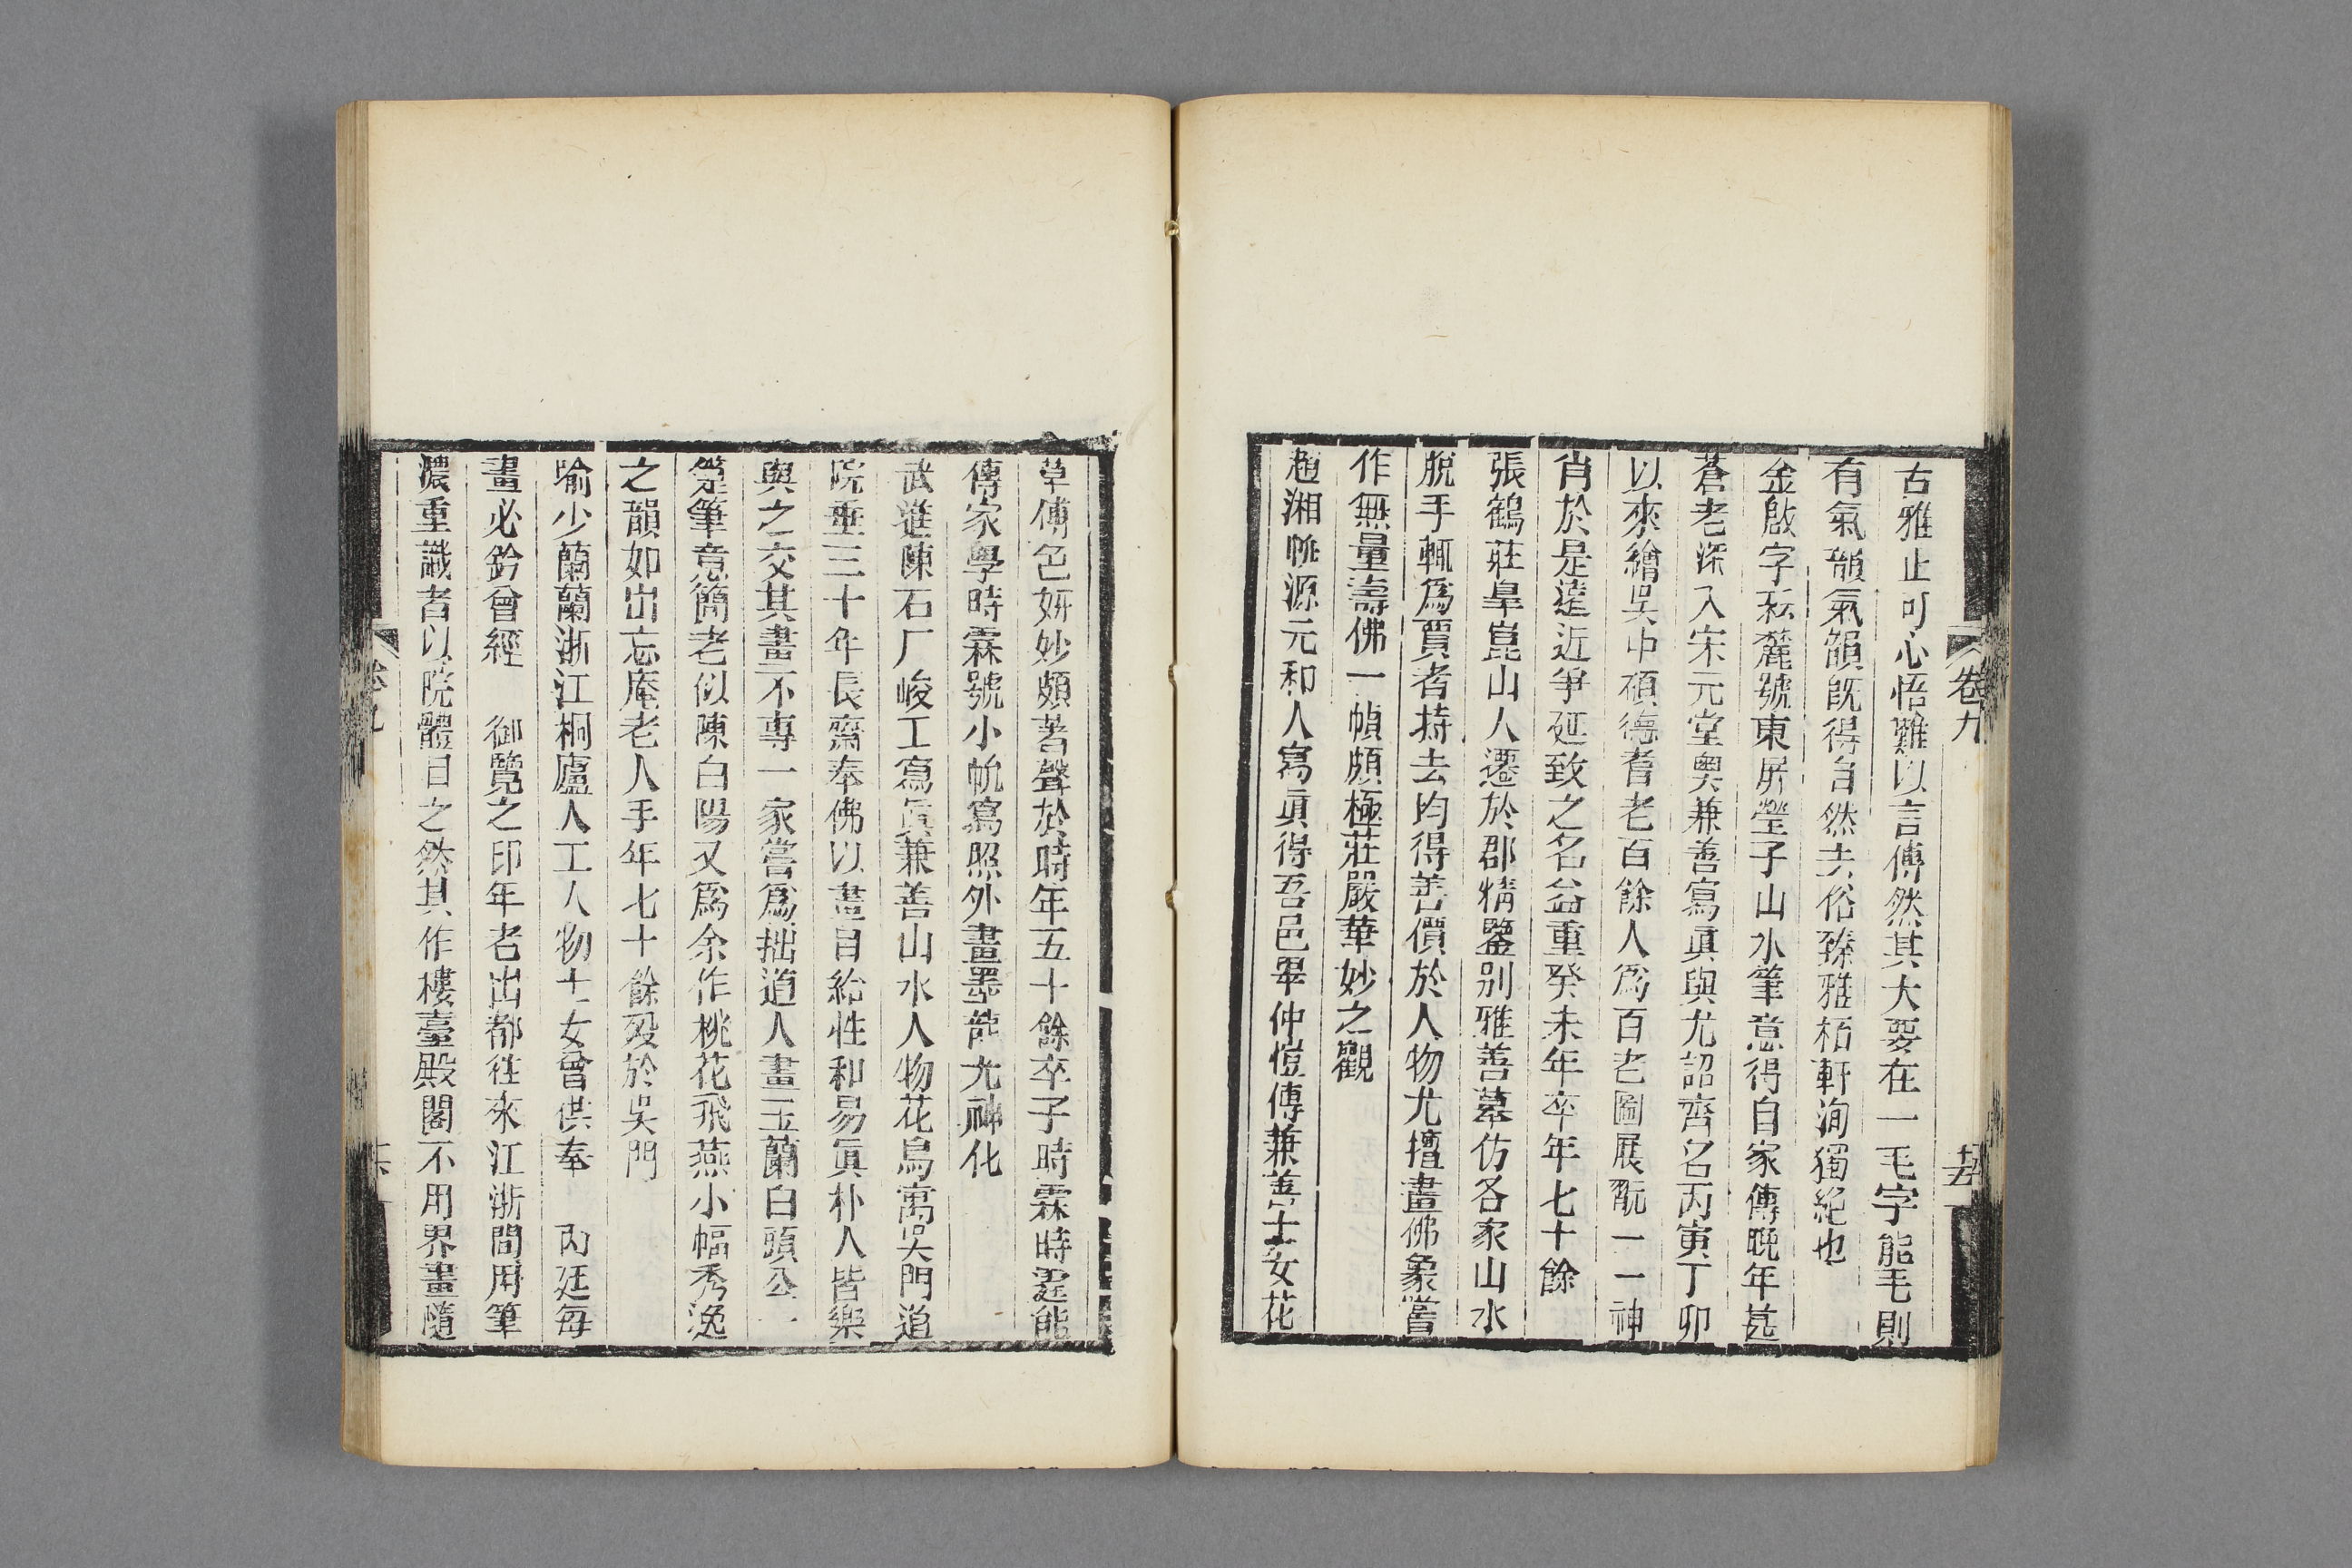 卷九
十五
古雅止可心悟難以言傳然其大要在一毛字能毛則
有氣韻氣韻旣得自然去俗臻雅栢軒洵獨絕也
金啟字耘麓號東屏瑩子山水筆意得自家傳晚年甚
蒼老深入宋元堂奧兼善寫眞與尤詔齊名丙寅丁卯
以來繪吳中碩德耆老百餘人爲百老圖展翫一一神
肖於是遠近爭延致之名益重癸未年卒年七十餘
張鶴莊臯崑山人遷於郡精鑒别雅善摹仿各家山水
脫手輒爲賈者持去均得善價於人物尤擅畫佛象嘗
作無量壽佛一幀頗極莊嚴華妙之觀
趙湘帆源元和人寫眞得吾邑畢仲愷傳兼善士女花
草傅色妍妙頗著聲於時年五十餘卒子時霖時霆能
傳家學時霖號小帆寫照外畫墨龍尤神化
武進陳石厂峻工寫眞兼善山水人物花鳥寓吳門道
院垂三十年長齋奉佛以畫自給性和易眞朴人皆樂
與之交其畫不專一家嘗爲拙道人畫玉蘭白頭公一
箑筆意簡老似陳白陽又爲余作桃花飛燕小幅秀逸
之韻如出忘庵老人手年七十餘歿於吳門
喻少蘭蘭浙江桐廬人工人物士女曾供奉 內廷每
畫必鈐曾經 御覽之印年老出都往來江浙間用筆
濃重識者以院體目之然其作樓臺殿閣不用界畫隨
卷九